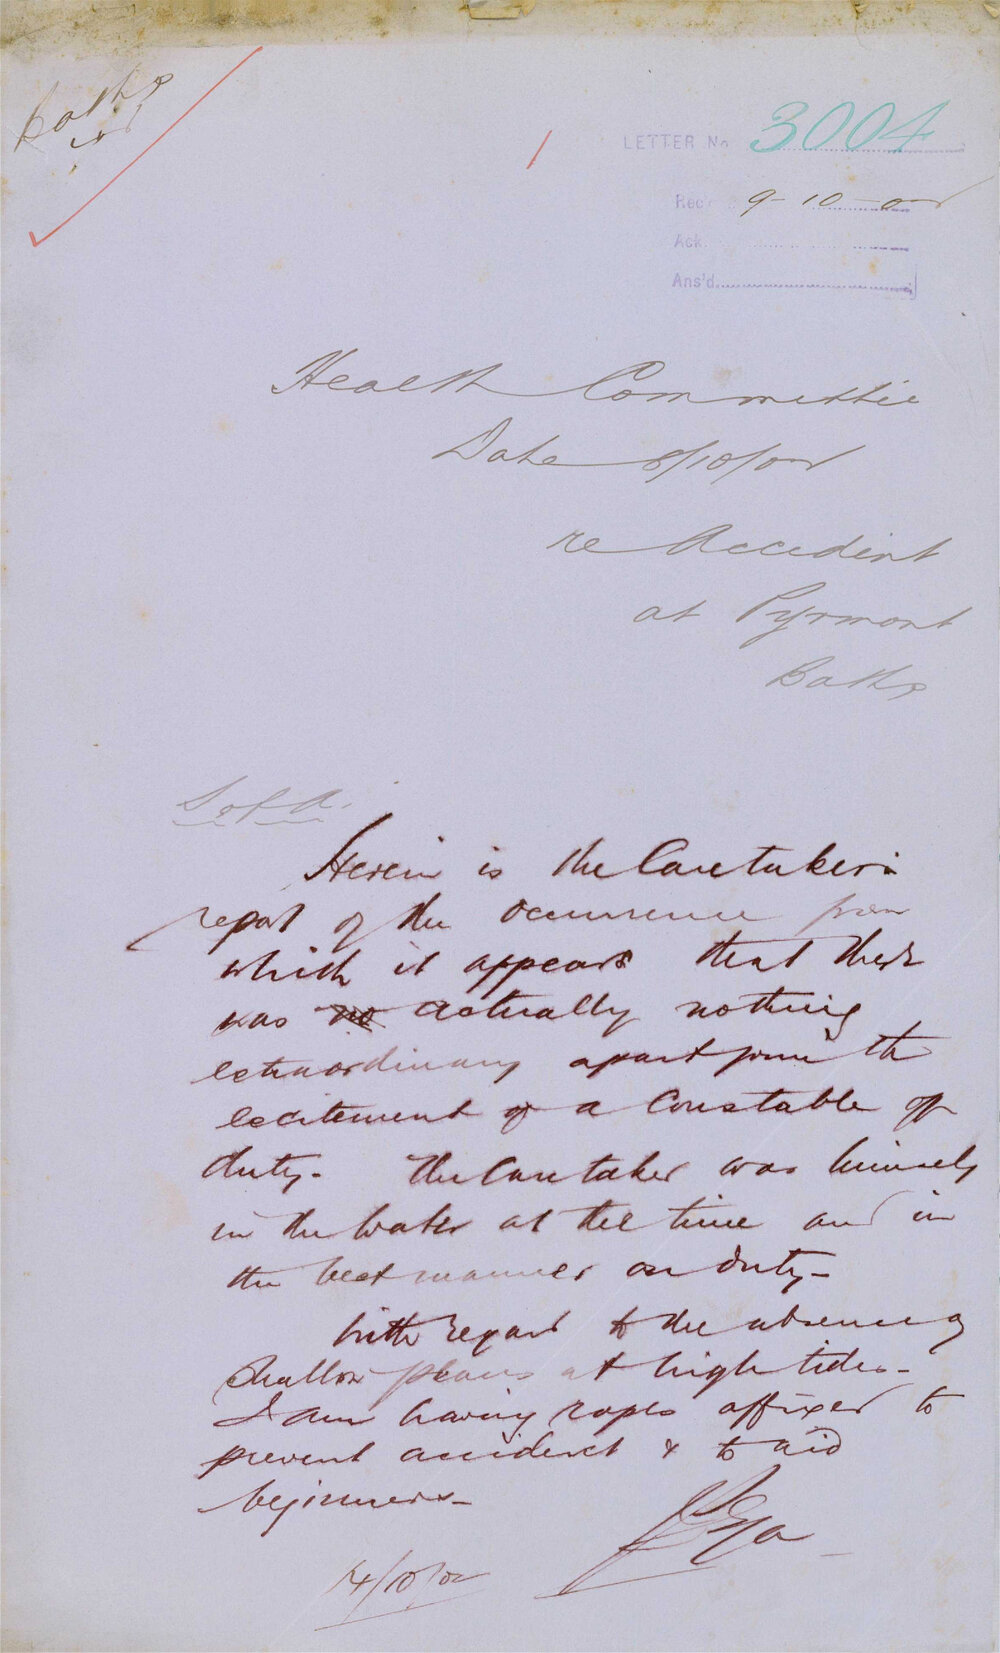 Baths
LETTER No 3004
Rec'd 9-10-02
Ack.
Ans'd
Health Committee
Date 8/10/02
re Accident
at Pyrmont
Baths
Herein is the Caretaker's
report of the occurrence from
which it appears that there
was no actually nothing
extraordinary apart from the
excitement of a Constable off
duty. The Caretaker was himself
in the water at the time and in
the best manner on duty-
With regard to the absence of
Shallow places at high tides-
I am having ropes affixed to
prevent accident & to aid
beginners-
14/10/02